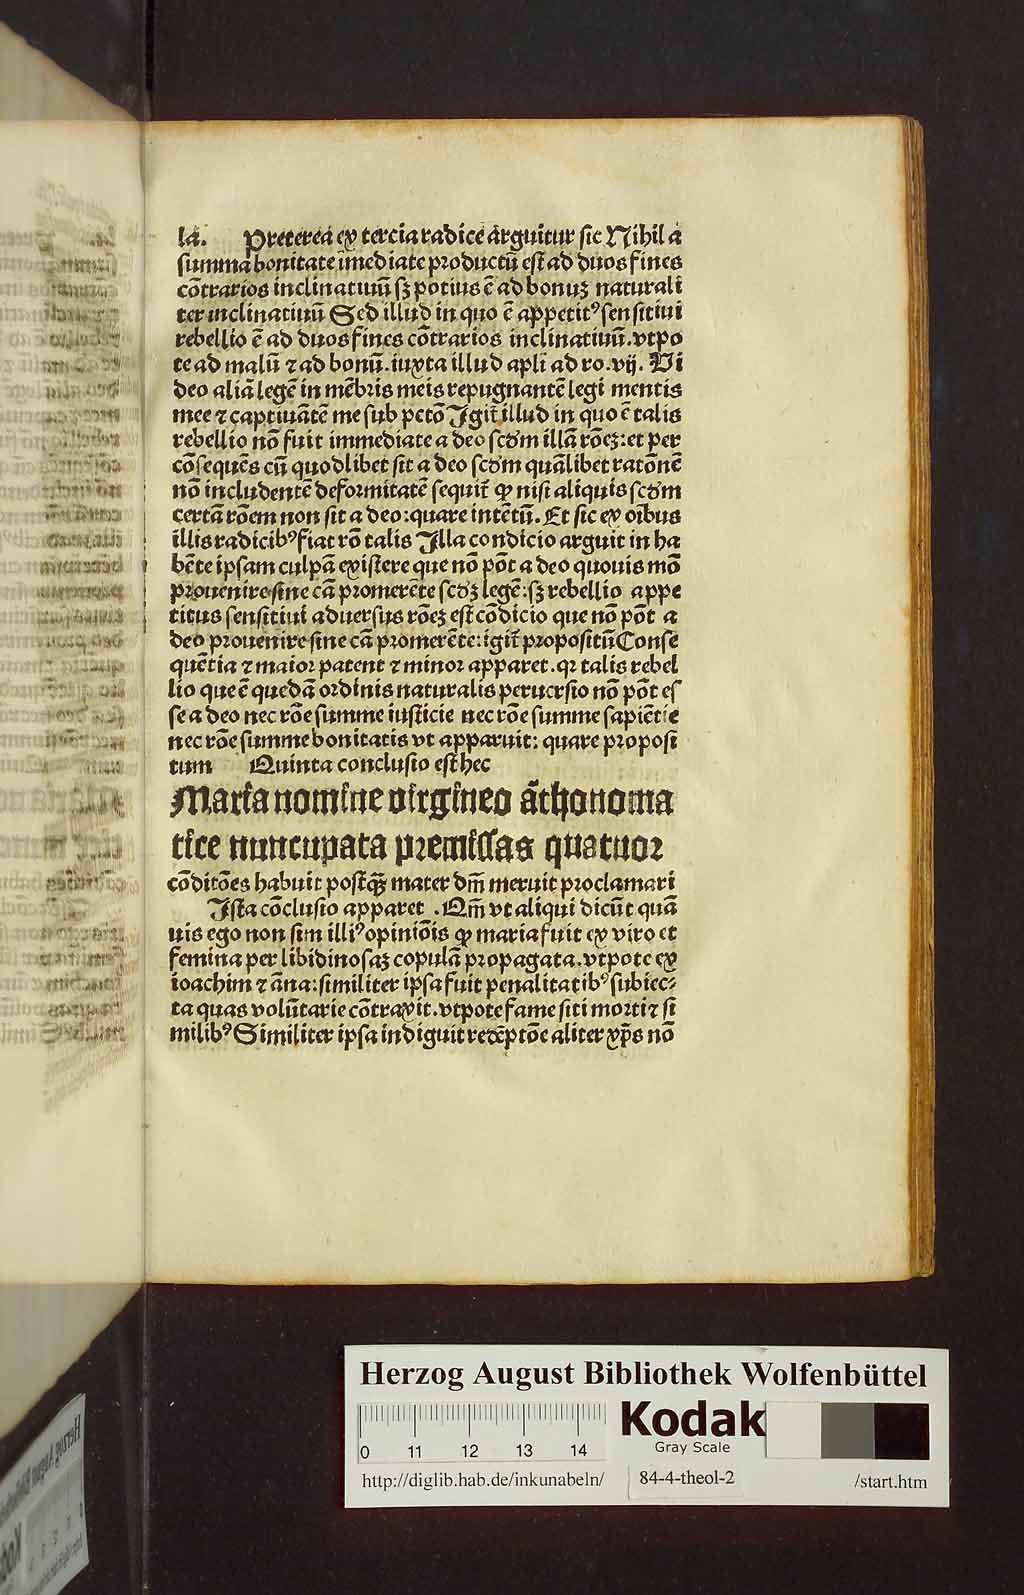 la. Preterea ex tercia radice arguitur sic Nihil a
summa bonitate īmediate productū est ad duos fines
cōtrarios inclinatiuū sꝫ potius ē ad bonuꝫ naturali
ter inclinatiuū Sed illud in quo ē appetitꝰ sensitiui
rebellio ē ad duos fines cōtrarios inclinatiuū. vtpo
te ad malū ⁊ ad bonū. iuxta illud apl̄i ad ro. vij. Vi
deo aliā legē in mēbris meis repugnantē legi mentis
mee ⁊ captiuātē me sub pctō Igit᷑ illud in quo ē talis
rebellio nō fuit immediate a deo scd̄m illā rōeꝫ: et per
cōsequēs cū quodlibet sit a deo scd̄m quālibet ratōnē
nō includentē deformitatē sequit᷑ ꝙ nisi aliquis scd̄m
certā rōem non sit a deo: quare intētū. Et sic ex oībus
illis radicibꝰ fiat rō talis Illa condicio arguit in ha
bēte ipsam culpā existere que nō pōt a deo quouis mō
prouenire sine cā promerēte scd̄ꝫ legē: sꝫ rebellio appe
titus sensitiui aduersus rōeꝫ est cōdicio que nō pōt a
deo prouenire sine cā promerēte: igit᷑ propositū Conse
quētia ⁊ maior patent ⁊ minor apparet. qꝛ talis rebel
lio que ē quedā ordinis naturalis peruersio nō pōt es
se a deo nec rōe summe iusticie nec rōe summe sapiētie
nec rōe summe bonitatis vt apparuit: quare proposi
tum Quinta conclusio est hec
Maria nomine virgineo āthonoma
tice nuncupata premissas quatuor
cōditōes habuit postqꝫ mater dm̄ meruit proclamari
Ista cōclusio apparet. Qm̄ vt aliqui dicūt quā
uis ego non sim illiꝰ opiniōis ꝙ maria fuit ex viro et
femina per libidinosaꝫ copulā propagata. vtpote ex
ioachim ⁊ āna: similiter ipsa fuit penalitatibꝰ subiec⸗
ta quas volūtarie cōtraxit. vtpote fame siti morti ⁊ si
milibꝰ Similiter ipsa indiguit redēptōe aliter xp̄s nō
Herzog August Bibliothek Wolfenbüttel
0 11 12 13 14
Kodak
Gray Scale
http://diglib.hab.de/inkunabeln/ 84-4-theol-2 /start.htm